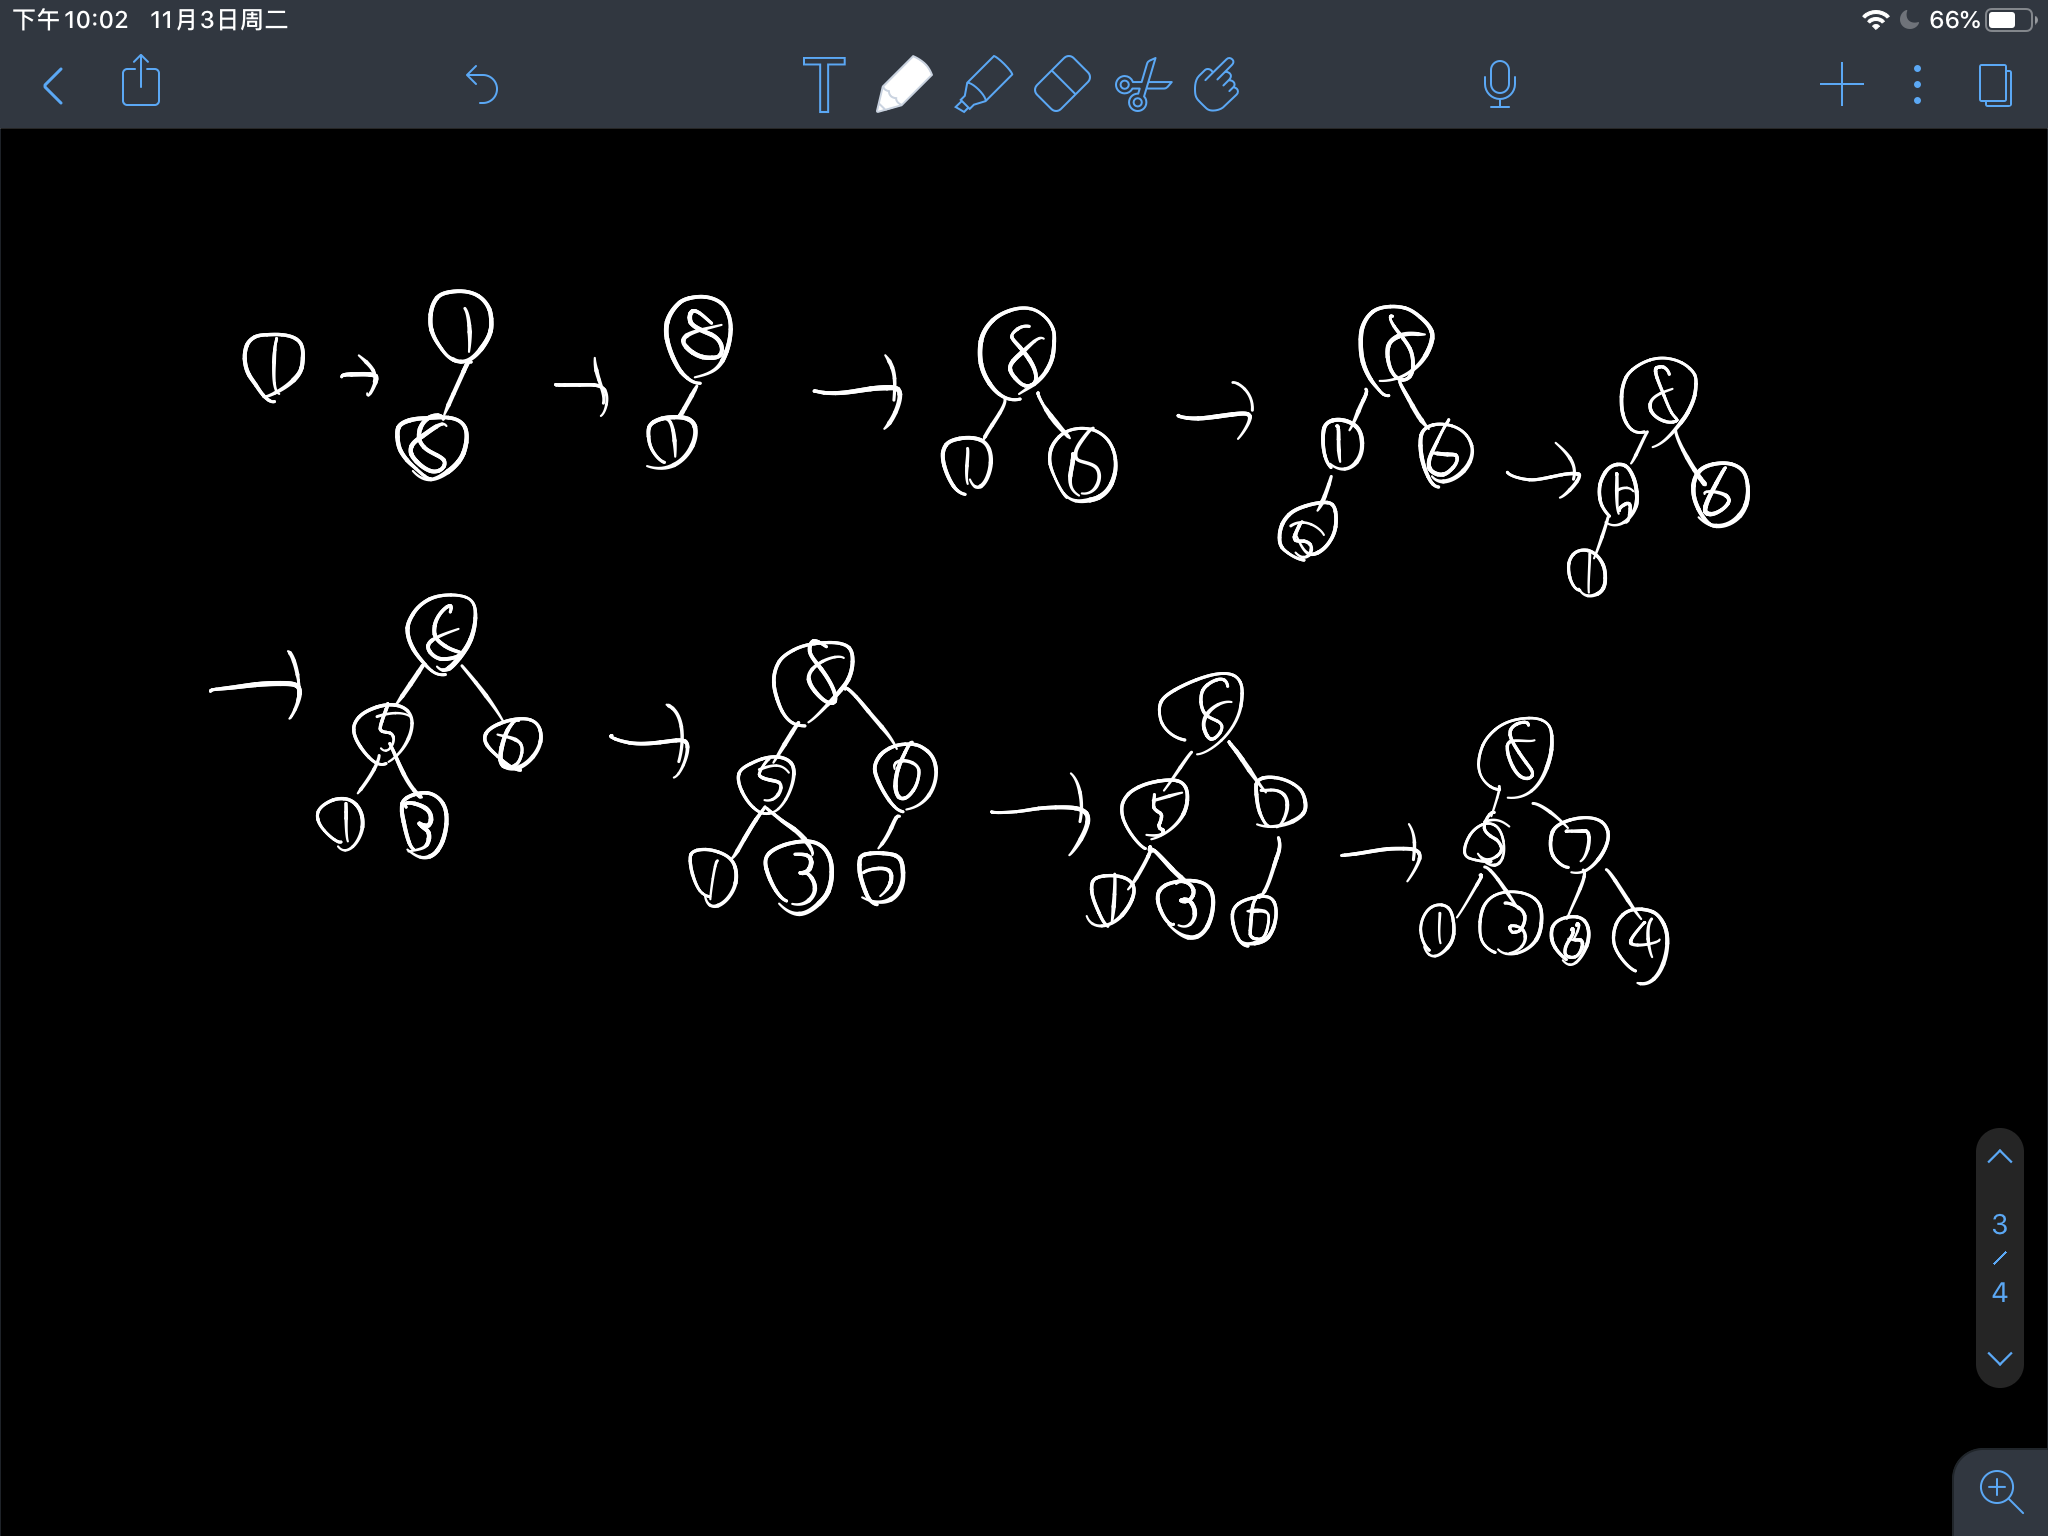 下午10:02 11月3日周二 66%
T
1 → 1 8 → 8 1 → 8 1 6 → 8 1 6 5 → 8 5 6 1
→ 8 5 6 1 3 → 8 5 6 1 3 7 → 8 5 7 1 3 6 → 8 5 7 1 3 6 4
3
/
4